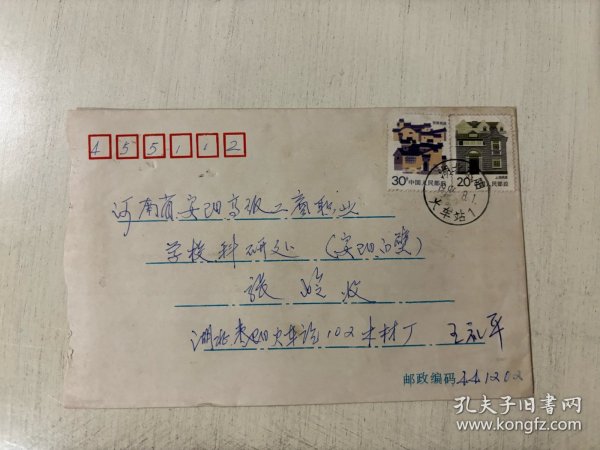 455112
30分 中国人民邮政
20分 中国人民邮政
火车站1
河南省安阳高级工商职业
学校科研处（安阳白璧）
张 收
湖北枣阳火车站102木材厂 王永平
邮政编码 441202
孔夫子旧书网
www.kongfz.com